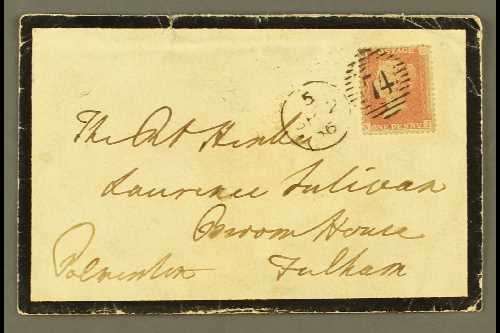 POSTAGE
74
ONE PENNY
5
56
The Rt Honble
Laurence Sulivan
Broom House
Fulham
Palmerston